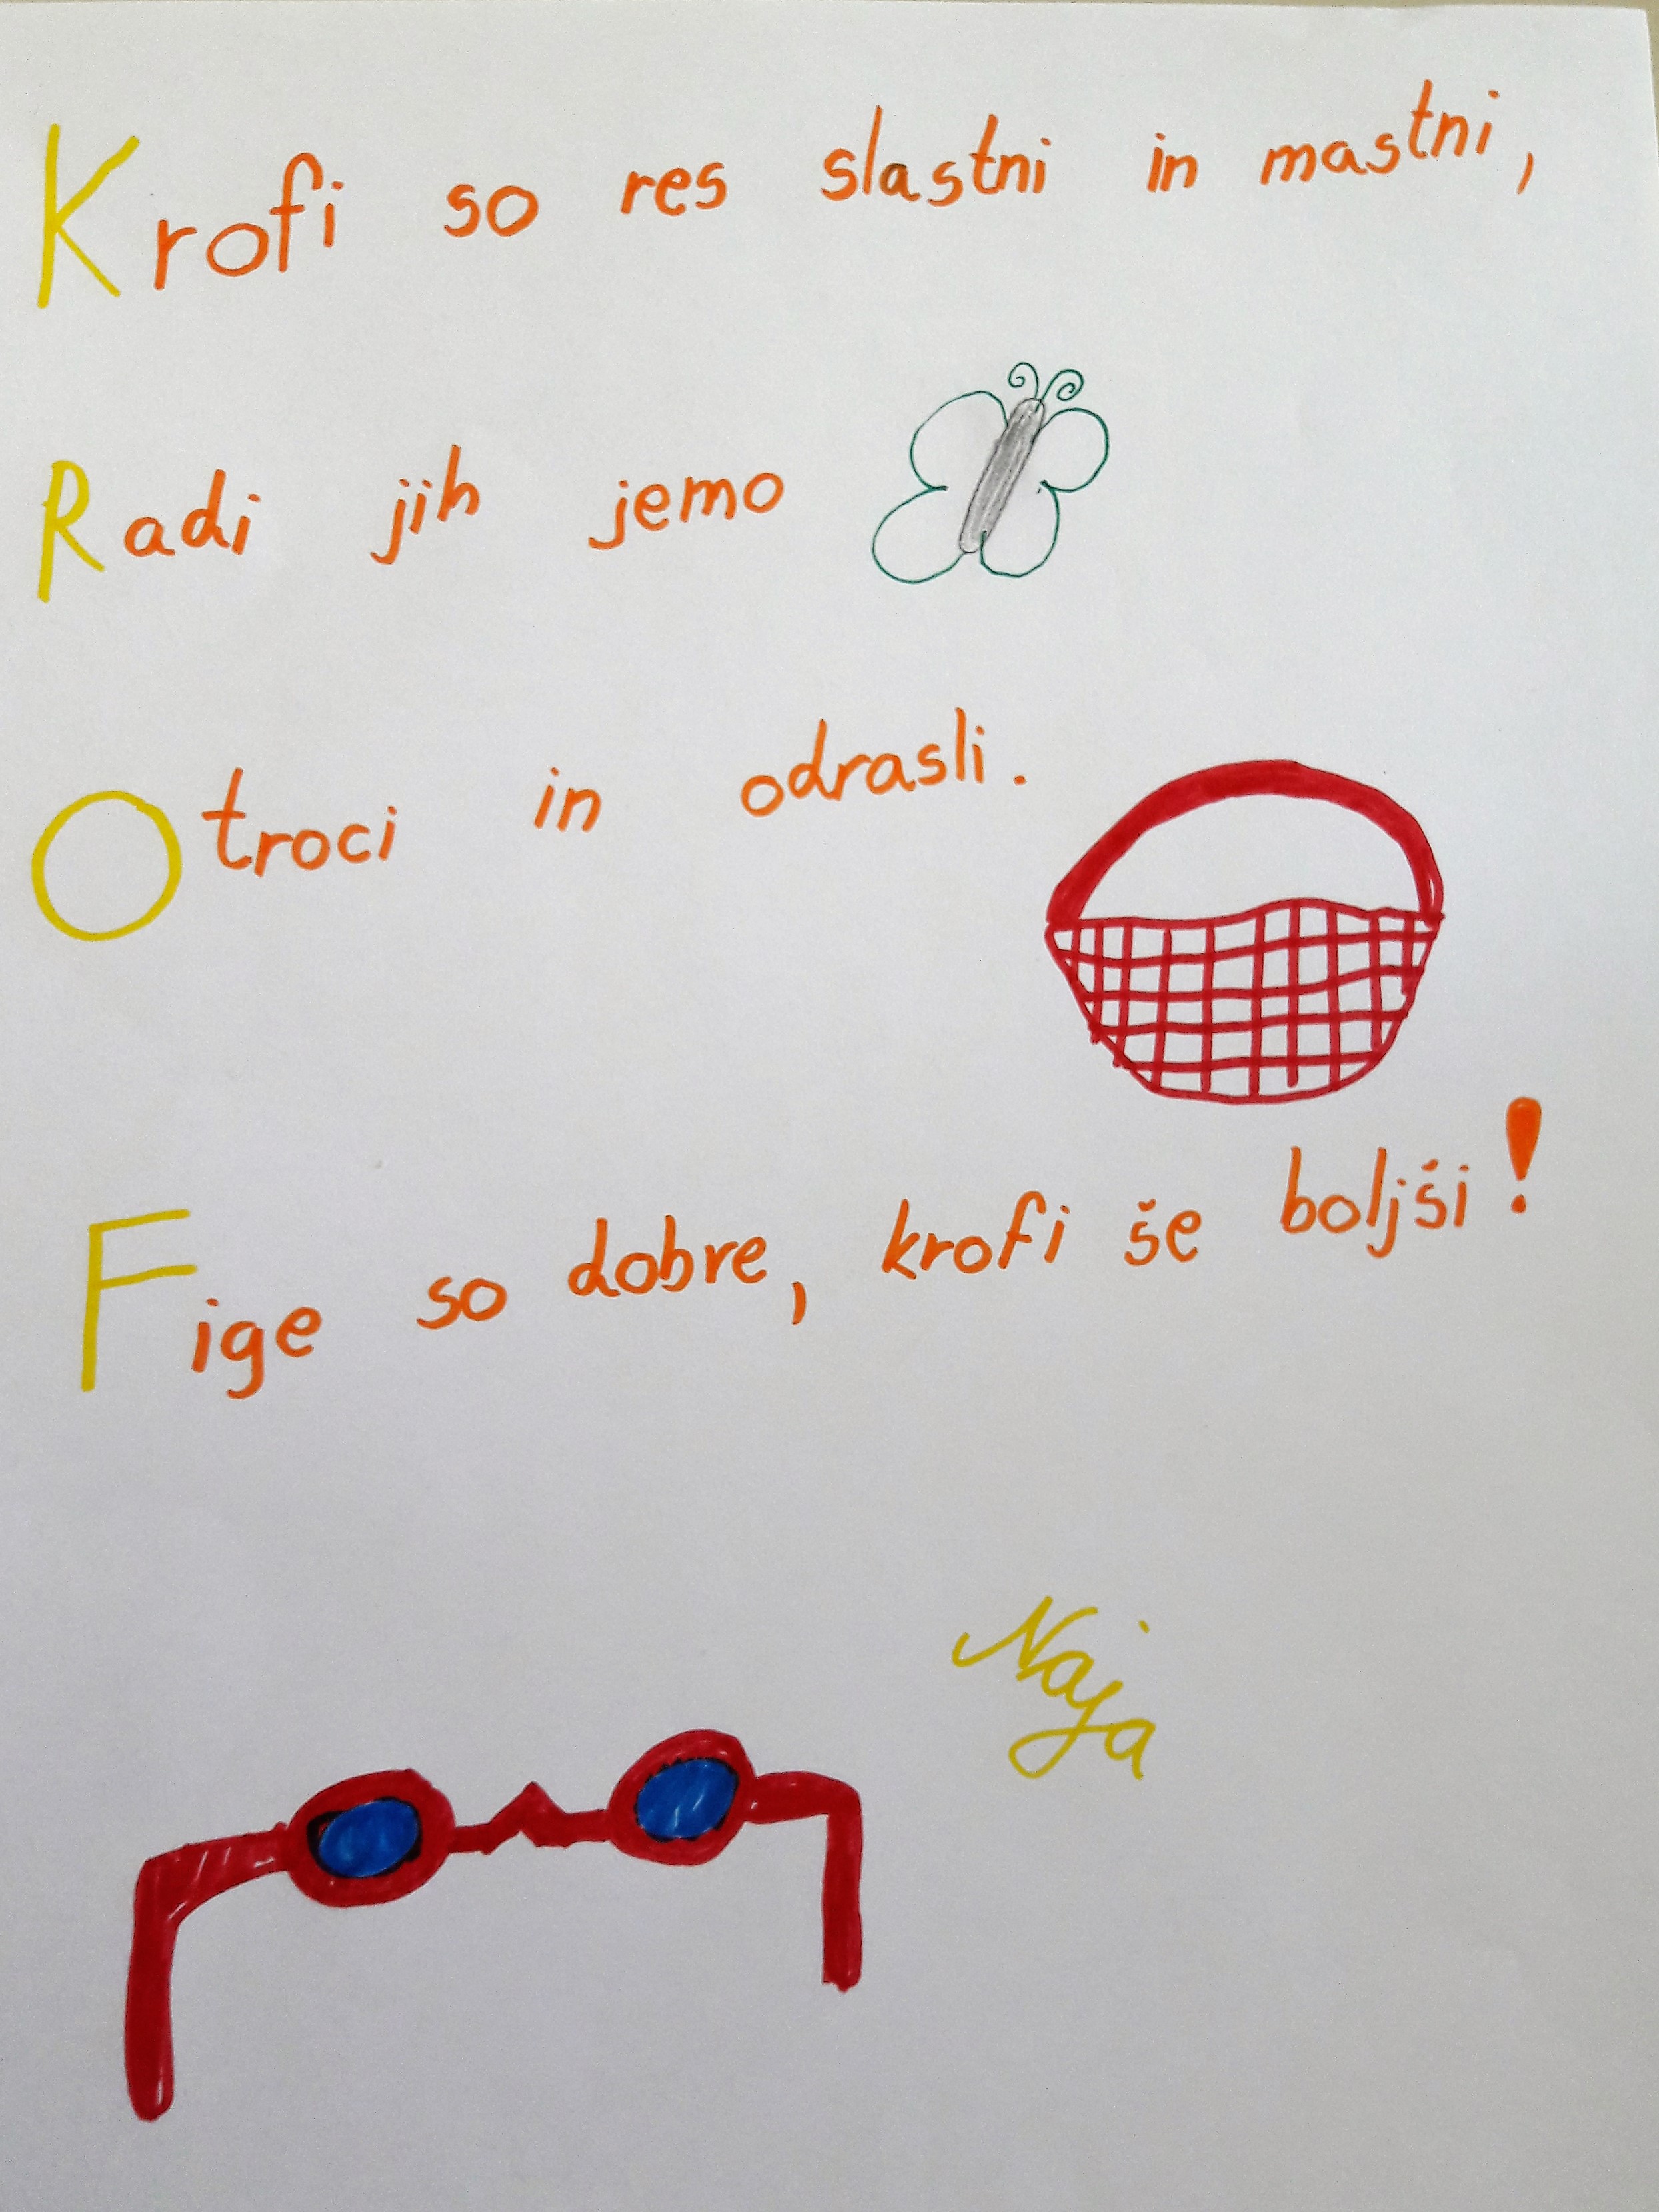 Krofi so res slastni in mastni,
Radi jih jemo
Otroci in odrasli.
Fige so dobre, krofi še boljši!
Naja